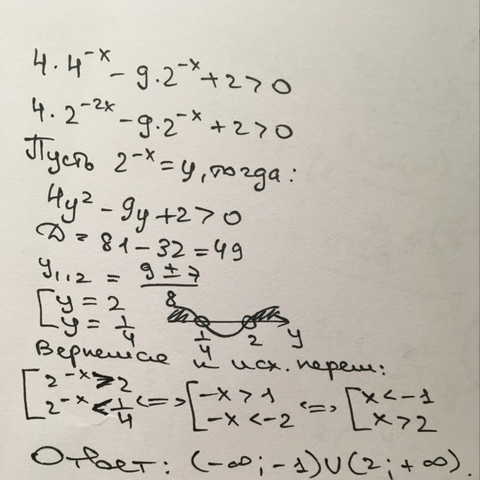 4·4^{-x} - 9·2^{-x} + 2 > 0
4·2^{-2x} - 9·2^{-x} + 2 > 0
Пусть 2^{-x} = y, тогда:
4y² - 9y + 2 > 0
D = 81 - 32 = 49
y_{1,2} = \frac{9 ± 7}{8}
[ y = 2
y = \frac{1}{4}
\frac{1}{4} 2 y
Вернемся к исх. перем:
[ 2^{-x} > 2 <=> [ -x > 1 <=> [ x < -1
2^{-x} < \frac{1}{4} -x < -2 x > 2
Ответ: (-∞; -1) ∪ (2; +∞).